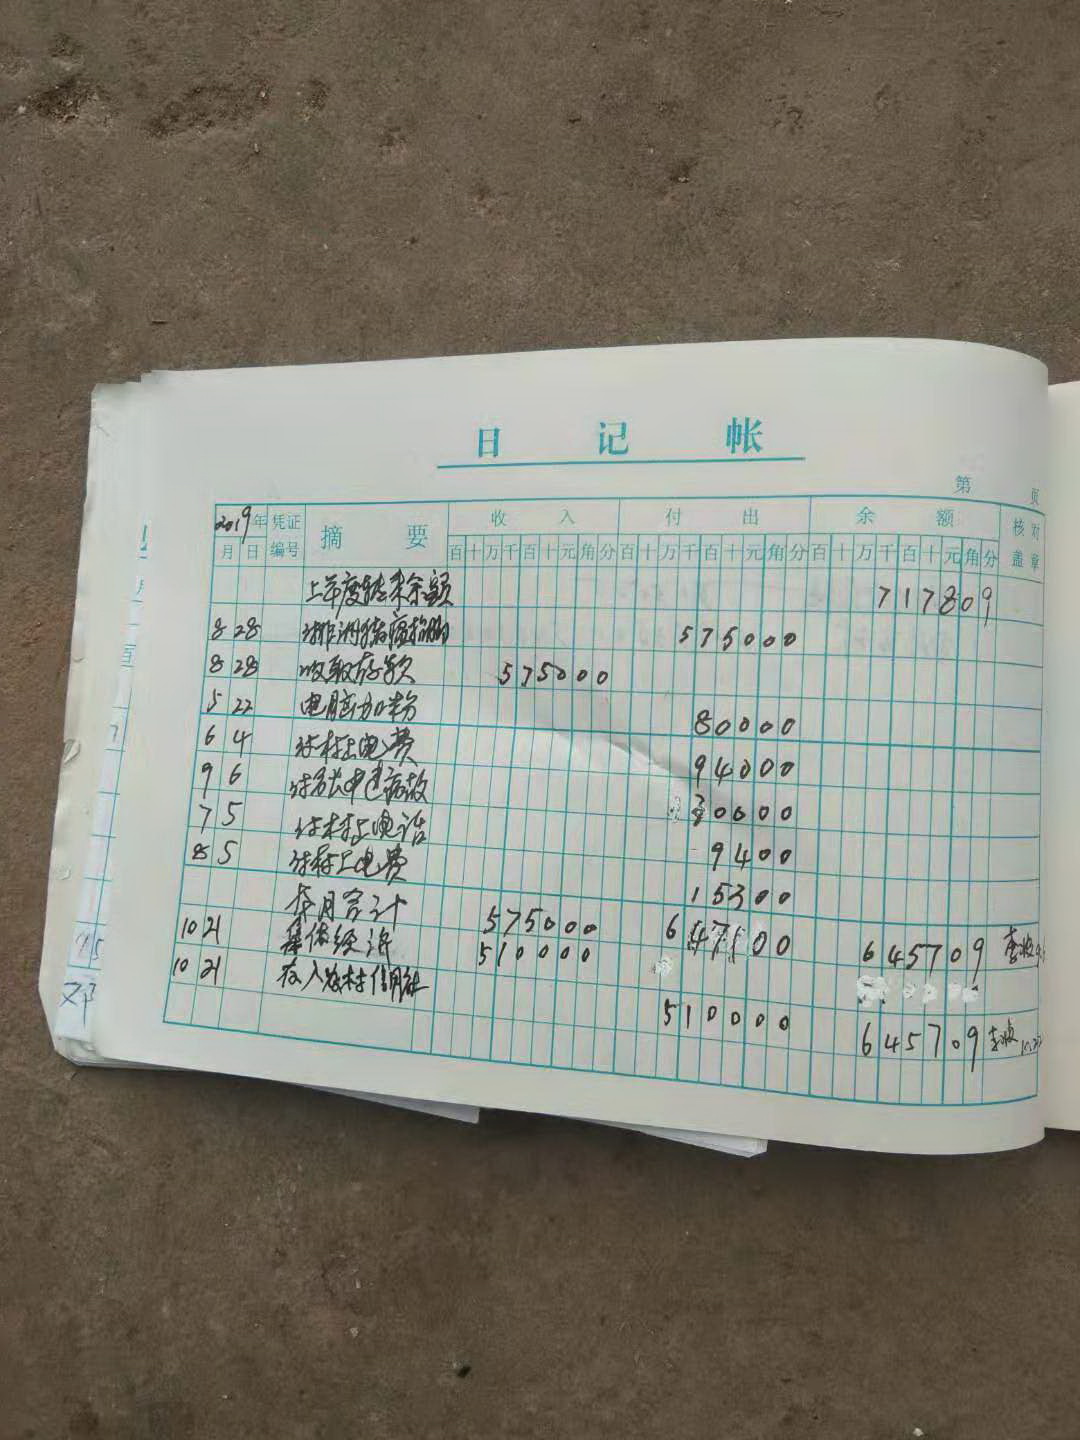 日 记 帐
第 页
2019年 凭证编号 摘 要 收 入 付 出 余 额 核对盖章
月 日 百十万千百十元角分 百十万千百十元角分 百十万千百十元角分
上年度转来余额 717809
8 28 575000
8 28 收取存款 575000
5 22 电脑加粉 80000
6 4 付村上电费 94000
9 6 30000
7 5 付村上电话 9400
8 5 付村上电费 15300
本月合计 575000 647100 645709
10 21 集体经济 510000
10 21 存入农村信用社 510000 645709